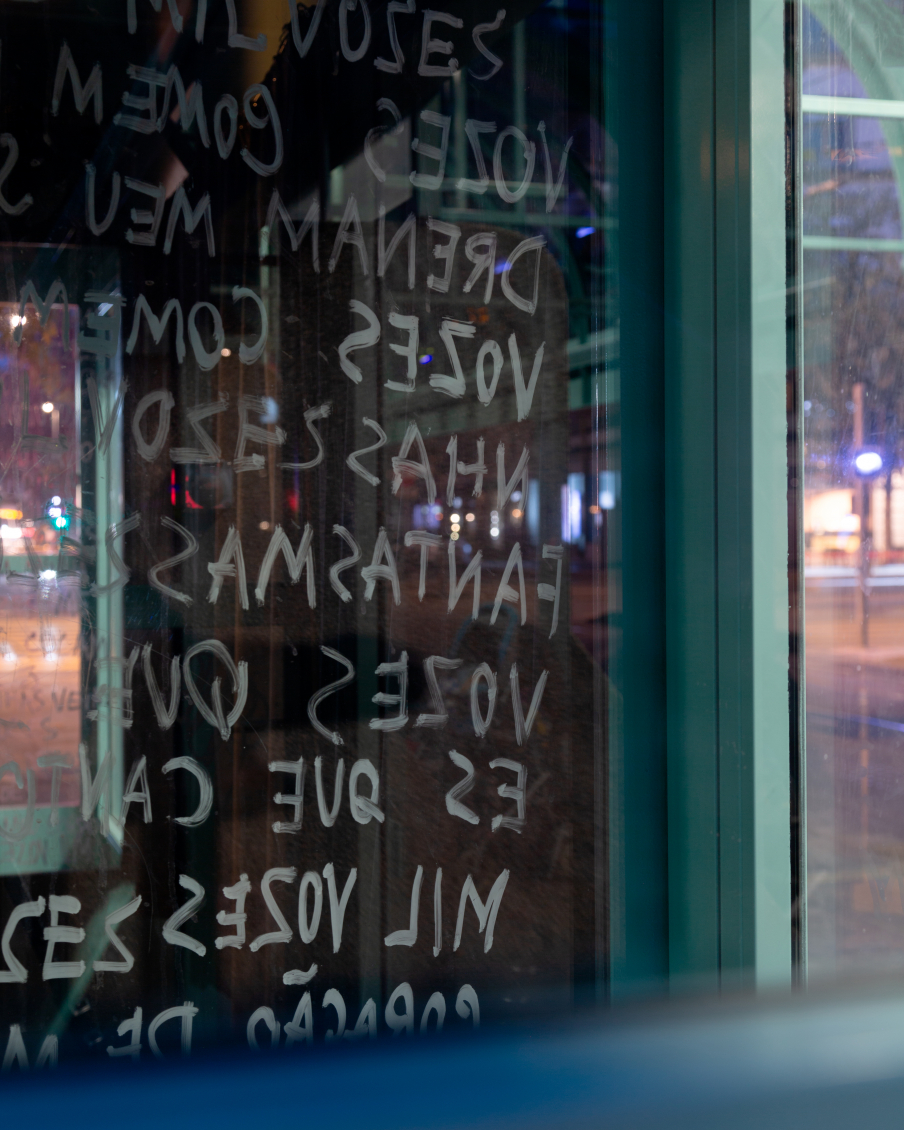 SEZOV
VOZES COMEM
DRENAM MEU
VOZES COMEM
NHAS SEZOV
FANTASMAS
VOZES QUE
ES QUE CANT
MIL VOZES SEZ
CORAÇÃO DE